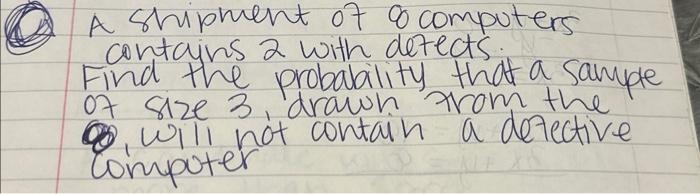 A shipment of 8 computers
contains 2 with defects.
Find the probability that a sample
of size 3, drawn from the
8, will not contain a defective
computer